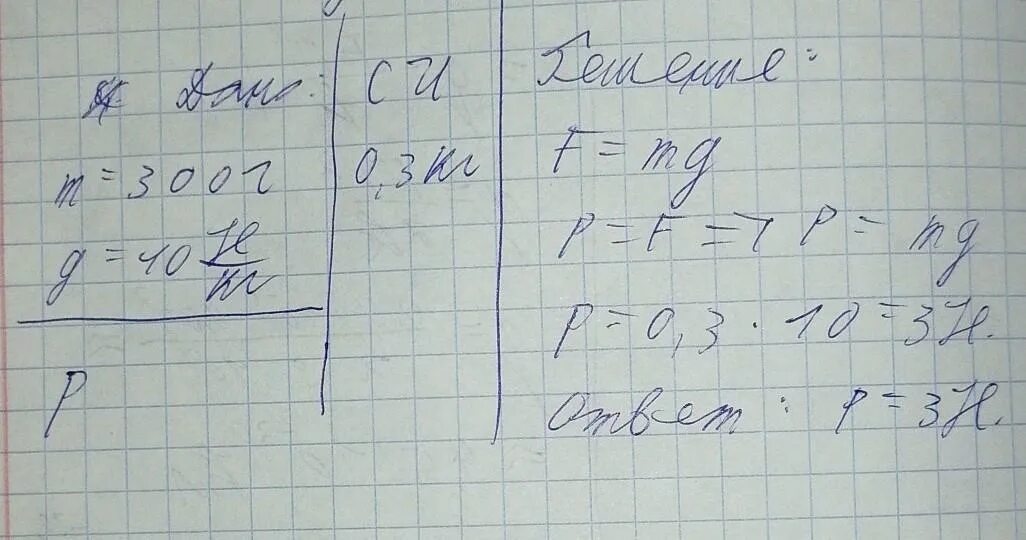 Дано:
m = 300 г
g = 10 Н/кг
P
СИ
0,3 кг
Решение:
F = mg
P = F => P = mg
P = 0,3 · 10 = 3 Н.
Ответ: P = 3 Н.